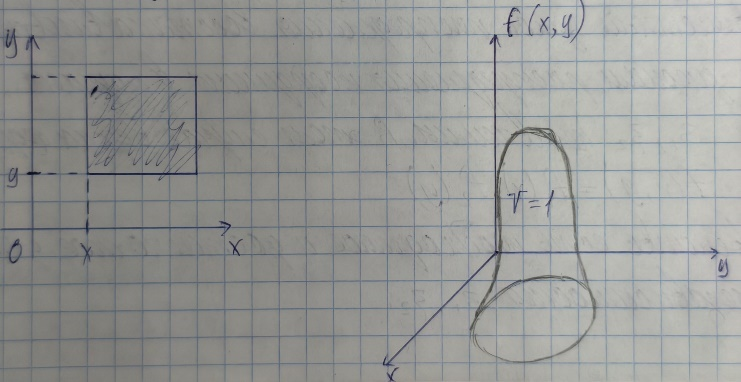 y
y
0
x
x
f(x,y)
V=1
y
x